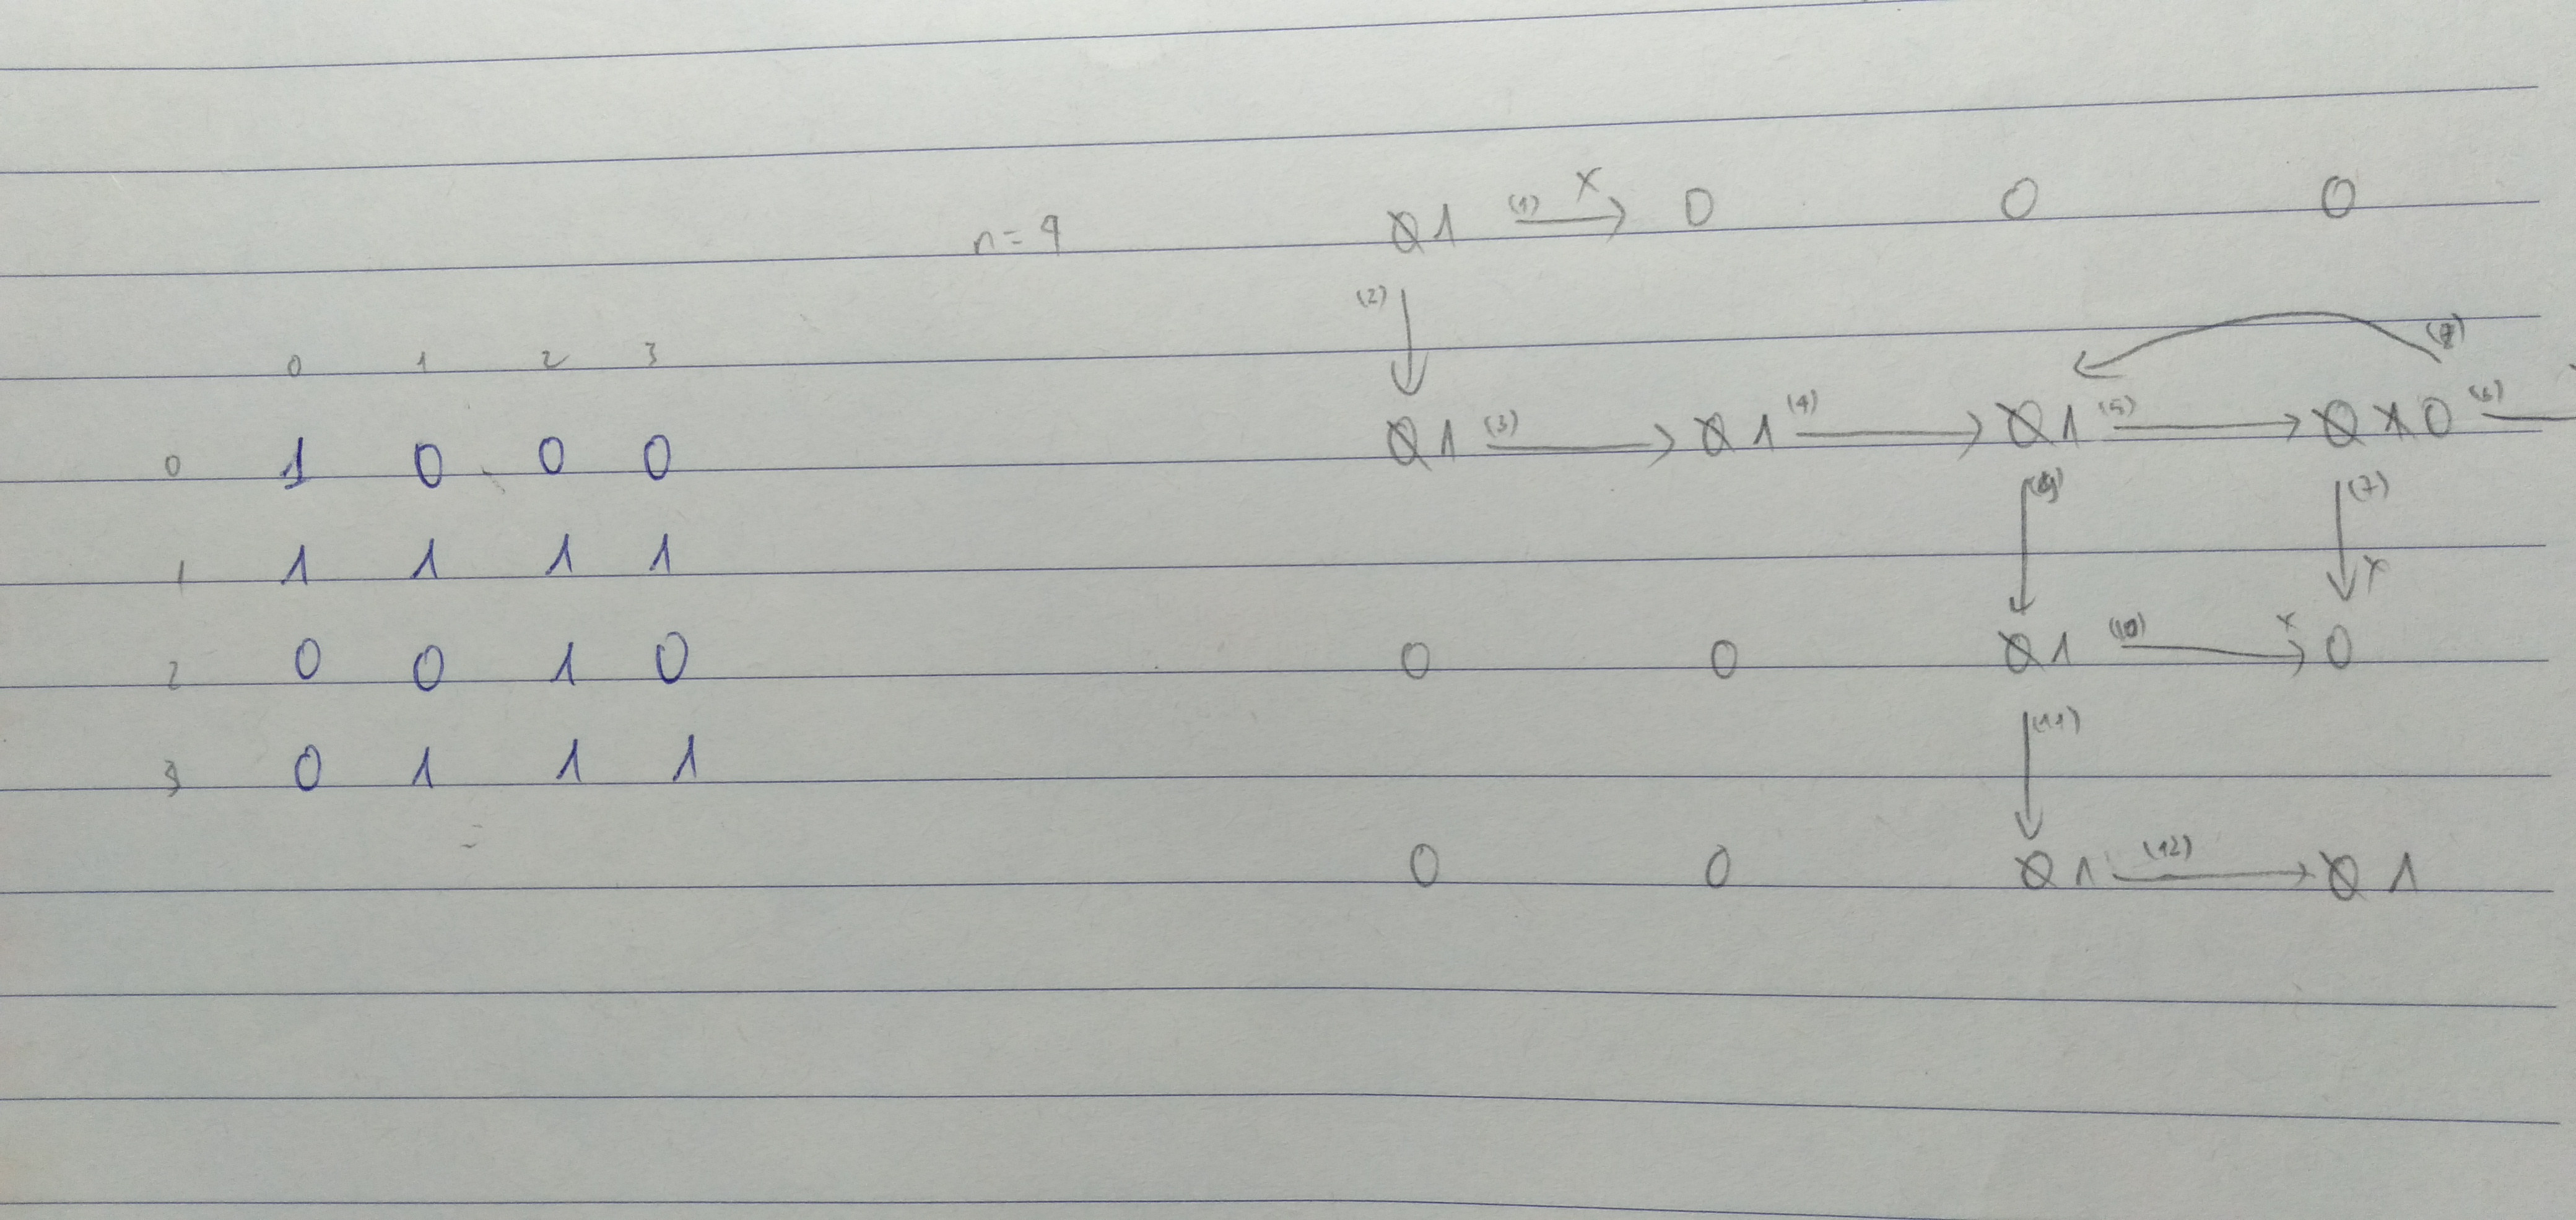 n=4
0 1 2 3
0 1 0 0 0
1 1 1 1 1
2 0 0 1 0
3 0 1 1 1
0 1 (1) x 0 0 0
(2)
0 1 (3) 0 1 (4) 0 1 (5) 0 1 0 (6)
(7) x
0 0 0 1 (10) x 0
(11)
0 0 0 1 (12) 0 1